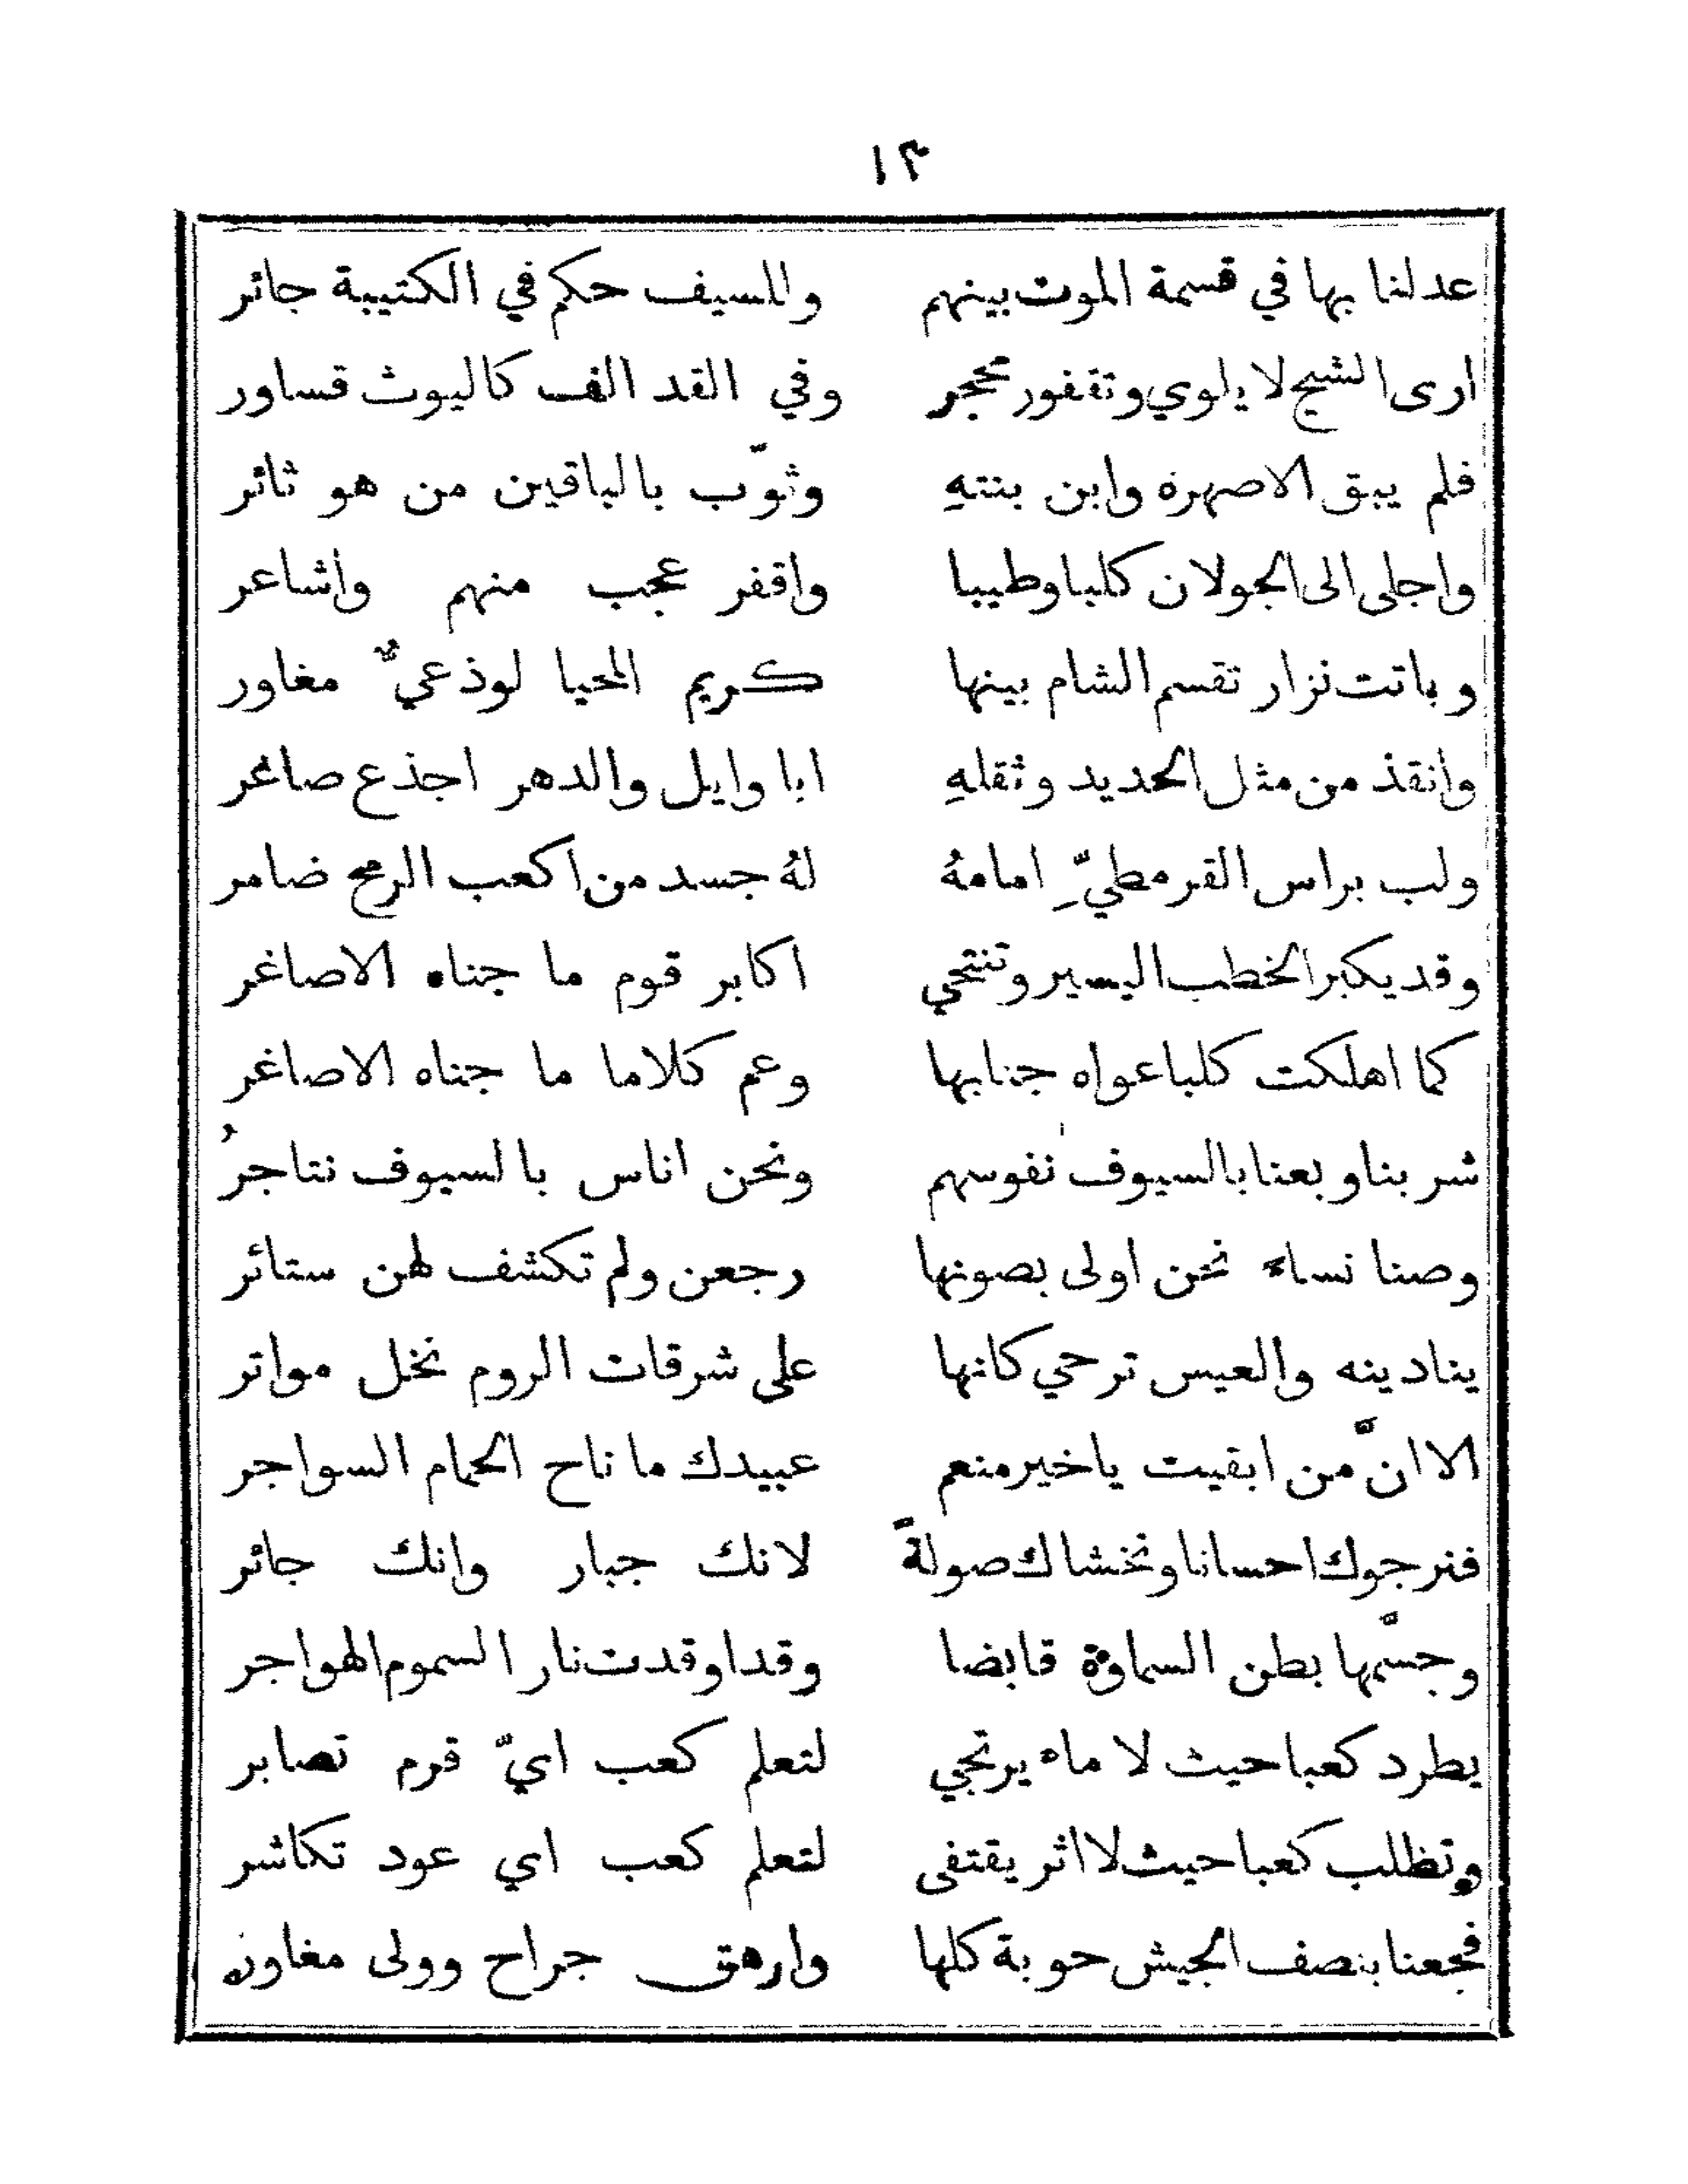 ١٣
عدلنا بها في قسمة الموت بينهم وللسيف حكم في الكتيبة جائر
ارى الشيح لا يلوي وتقفور محجر وفي القد الف كاليوث قساور
فلم يبق الا صهره وابن بنتهِ وثوّب بالباقين من هو ثائر
واجلى الى الجولان كلبا وطيبا واقفر عجب منهم واشاعر
وباتت نزار تقسم الشام بينها كريم المحيا لوذعيٌّ مغاور
وانقذ من مثل الحديد وثقلهِ ابا وايل والدهر اجذع صاغر
ولب براس القرمطيِّ امامهُ لهُ جسد من اكعب الرمح ضامر
وقد يكبر الخطب اليسير وتنتحي اكابر قوم ما جناه الاصاغر
كما اهلكت كلبا عواه جنابها وعم كلاما ما جناه الاصاغر
شربنا وبعنا بالسيوف نفوسهم ونحن اناس بالسيوف نتاجرُ
وصنا نساء نحن اولى بصونها رجعن ولم تكشف لهن ستائر
ينادينه والعيس ترحي كانها على شرقات الروم نخل مواتر
الا انَّ من ابقيت يا خير منعم عبيدك ما ناح الحمام السواجر
فنرجوك احسانا ونخشاك صولةً لانك جبار وانك جائر
وجسَّمها بطن السماوة قابضا وقد اوقدت نار السموم الهواجر
يطرد كعبا حيث لا ماء يرتجي لتعلم كعب ايّ قرم تصابر
وتظلب كعبا حيث لا اثر يقتفى لتعلم كعب اي عود تكاشر
فجعنا بنصف الجيش حوبة كلها وارهق جراح وولى مغاور